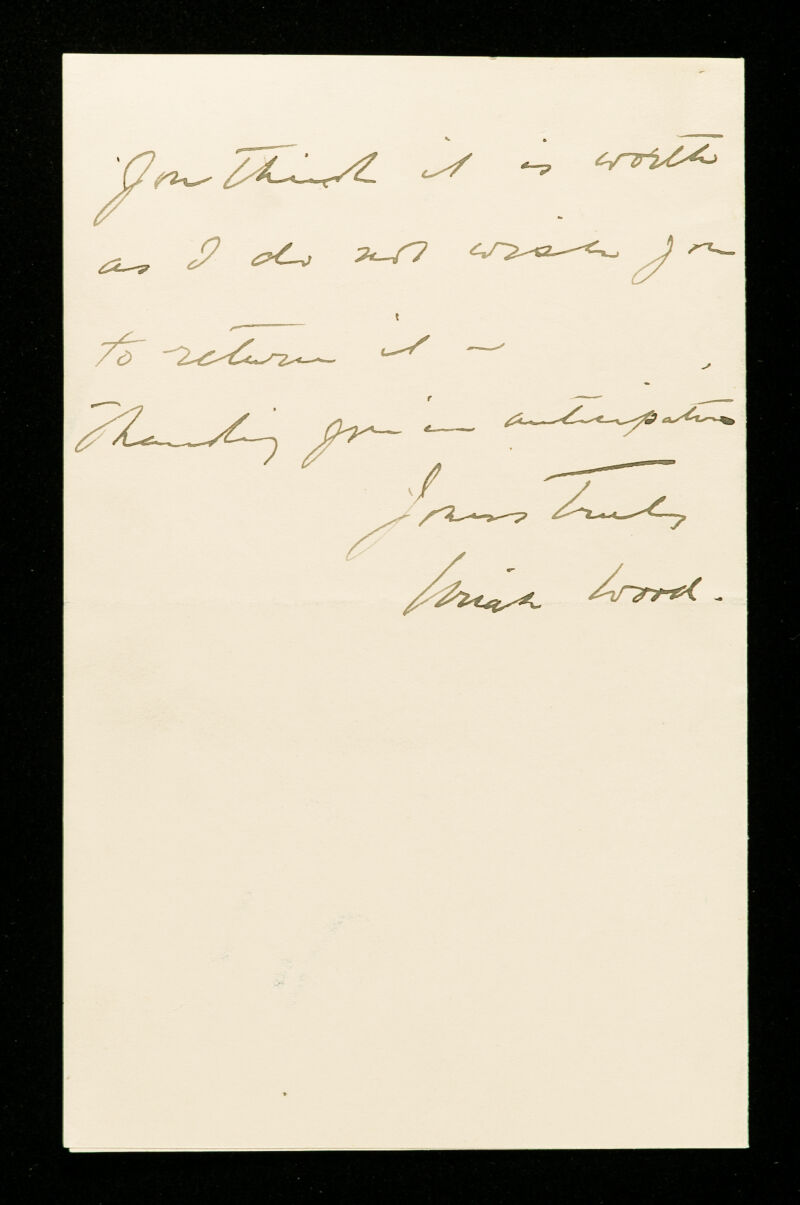 you think it is worth
as I do not wish you
to return it –
Thanking you in anticipation
Yours Truly
Uriah Wood.